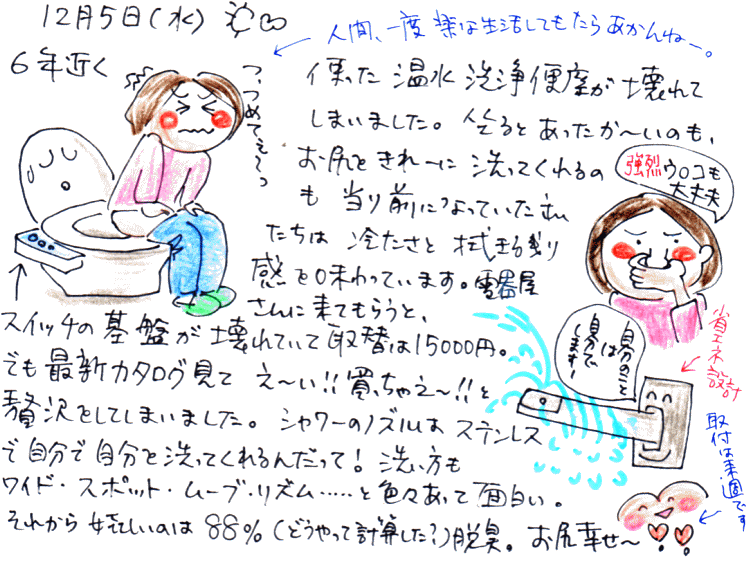 12月5日(水)
人間、一度 楽な生活してもたらあかんねー。
6年近く
使った 温水 洗浄便座が 壊れて
しまいました。坐るとあったか〜いのも、
お尻をきれーに 洗ってくれるの
も 当り前になっていた私
たちは 冷たさと 拭き残り
感を味わっています。電器屋
さんに来てもらうと、
スイッチの基盤が壊れていて取替は15000円。
でも最新カタログ見て え〜い!!買っちゃえ〜!!と
贅沢をしてしまいました。シャワーのノズルは ステンレス
で自分で自分を洗ってくれるんだって!洗い方も
ワイド・スポット・ムーブ・リズム……と色々あって面白い。
それから嬉しいのは 88%(どうやって計算した?)脱臭。お尻幸せ〜
つ、つめてぇ〜っ
強烈ウロコも
大丈夫
自分のこと
は
自分で
します!
省エネ設計
取付は来週です